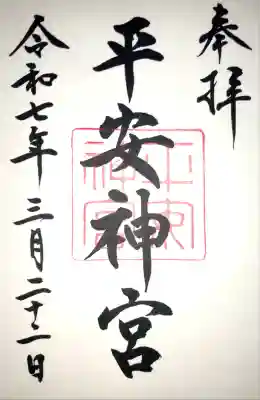 奉拝
平安神宮
平安
神宮
令和七年三月二十二日